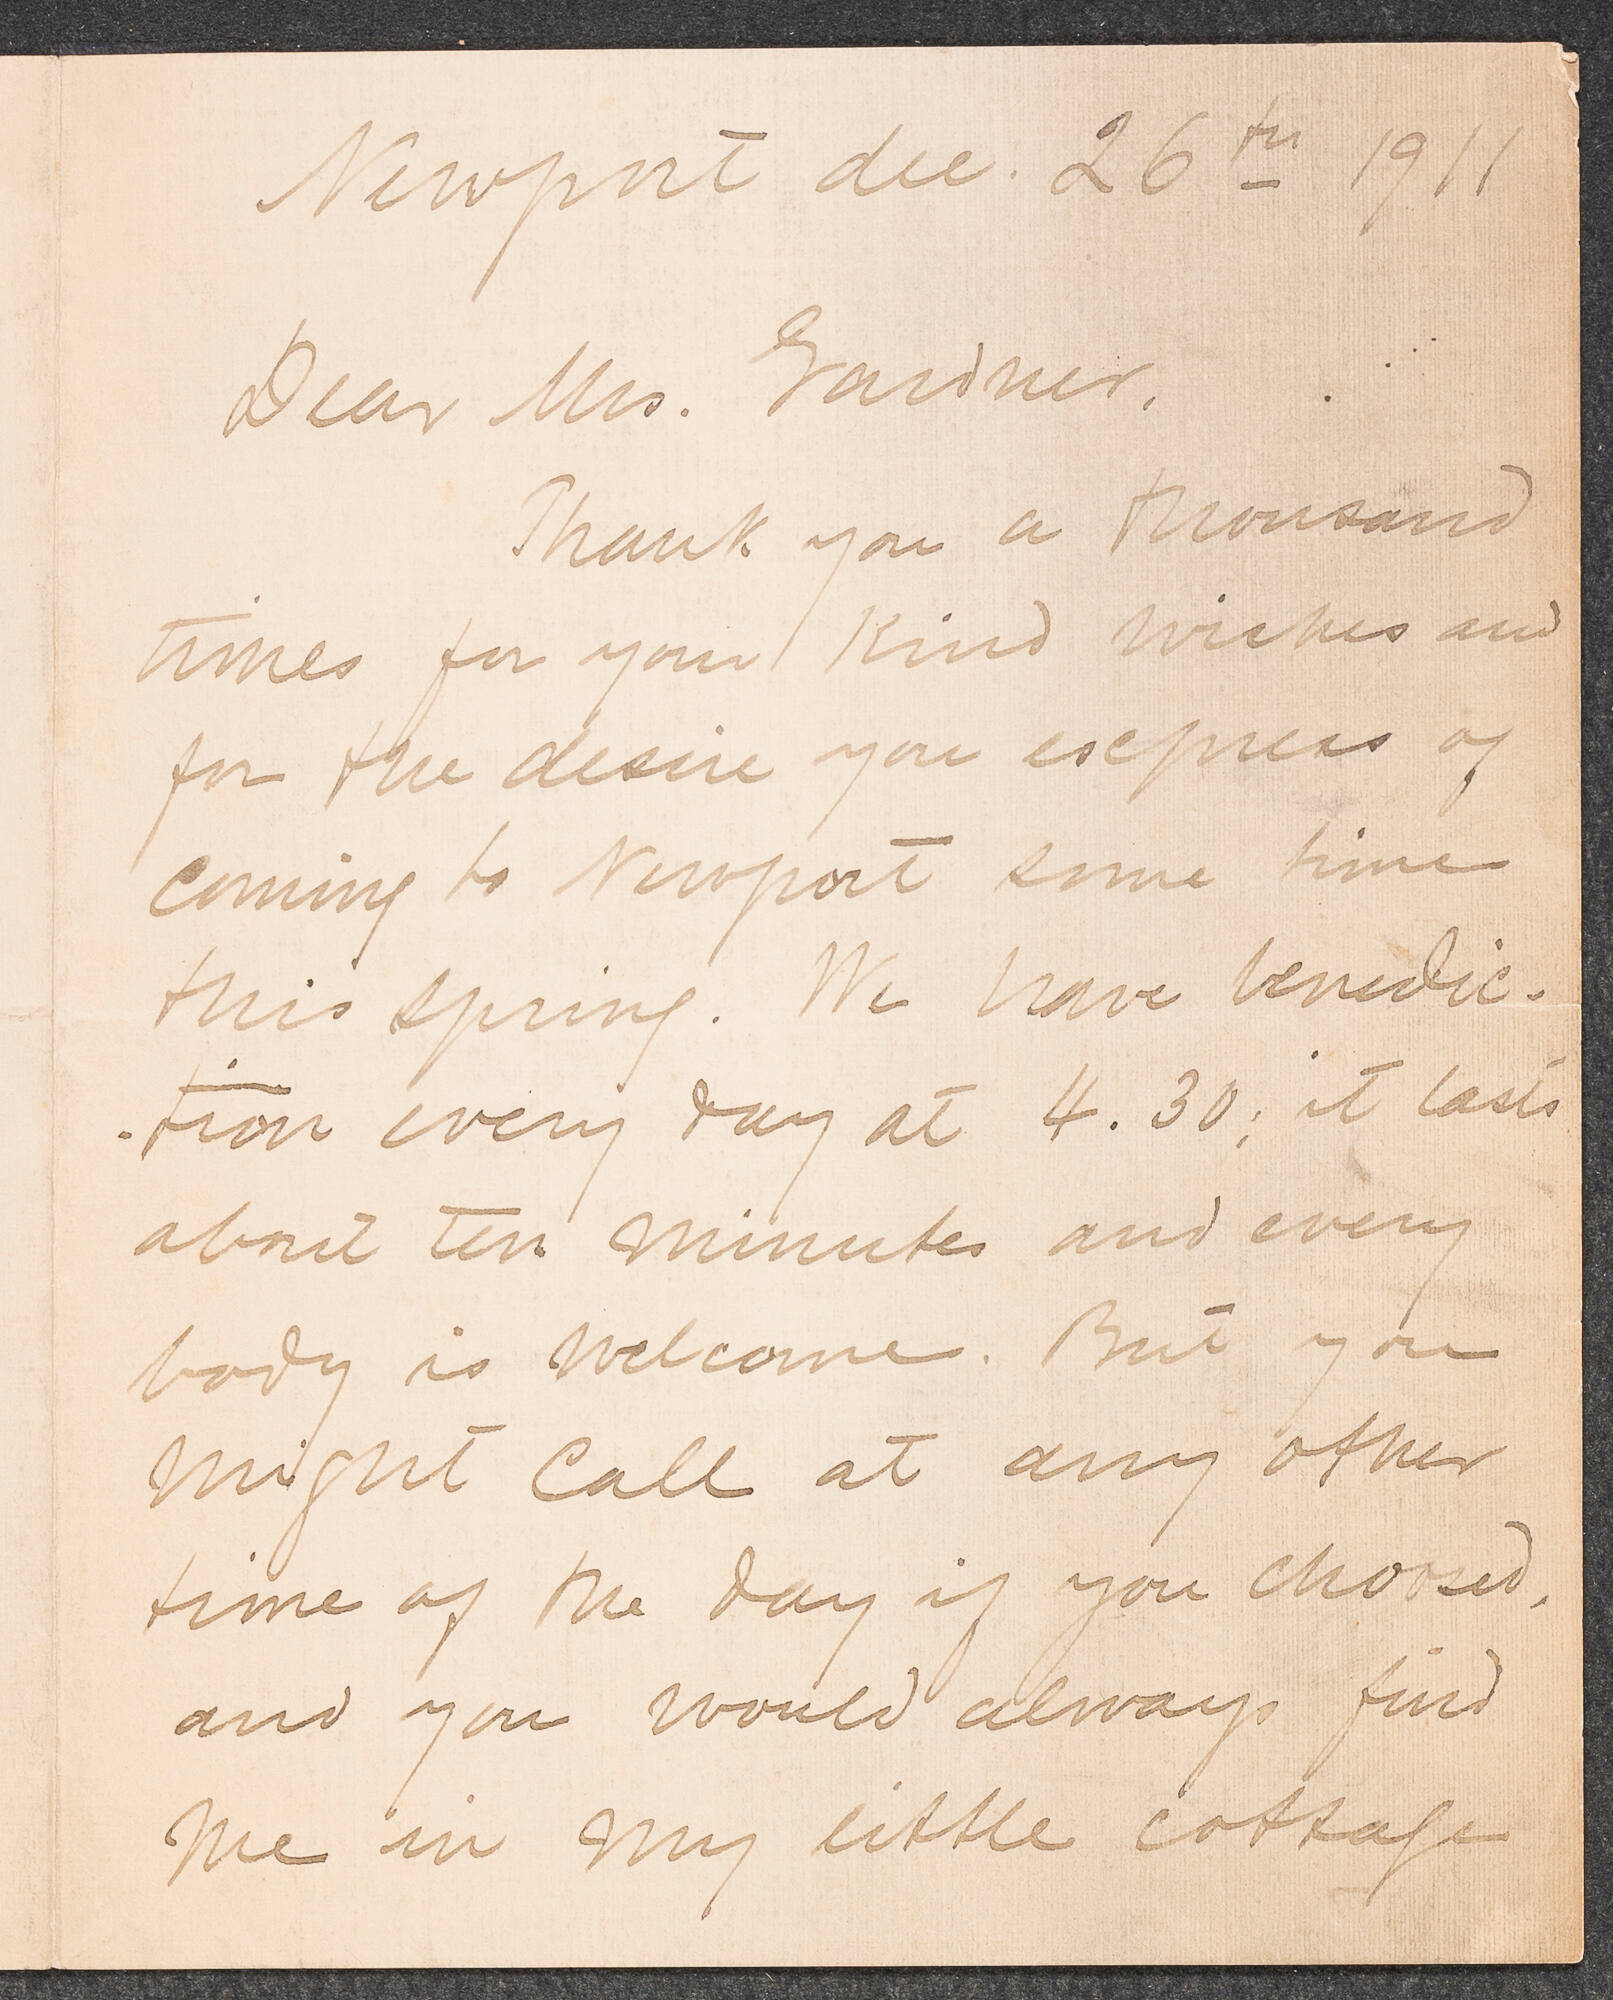 Newport dec. 26th 1911
Dear Mrs. Gardner,
Thank you a thousand
times for your kind wishes and
for the desire you escpress of
coming to Newport some time
this spring. We have benedic-
-tion every day at 4.30; it lasts
about ten minutes and every
body is welcome. But you
might call at any other
time of the day if you choosed,
and you would always find
me in my little cottage